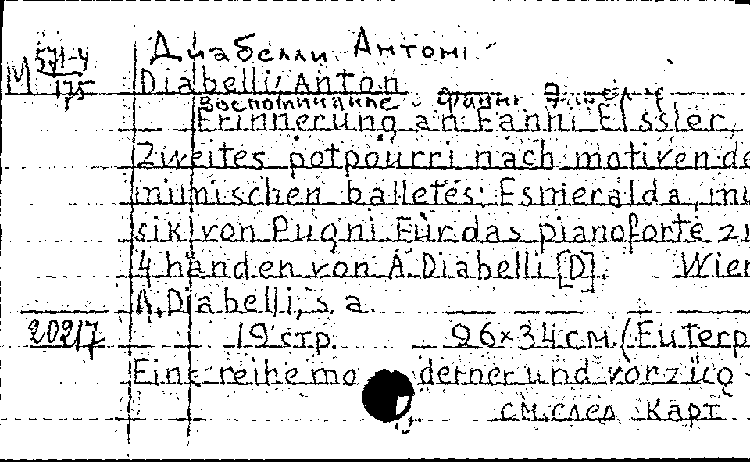 Диабелли Антоні
М 571-4
175
Diabelli, Anton
Воспоминание фанни Элслер
Erinnerung an Fanni Elssler,
Zweites potpourri nach motiven de
mimischen balletes: Esmeralda, mu
sik von Pugni. Für das pianoforte zu
4 händen von A. Diabelli [D]. Wien
A. Diabelli, s. a.
20217 19 стр. 26×34 см. (Euterp
Eine reihe moderner und vorzüg
см. след карт